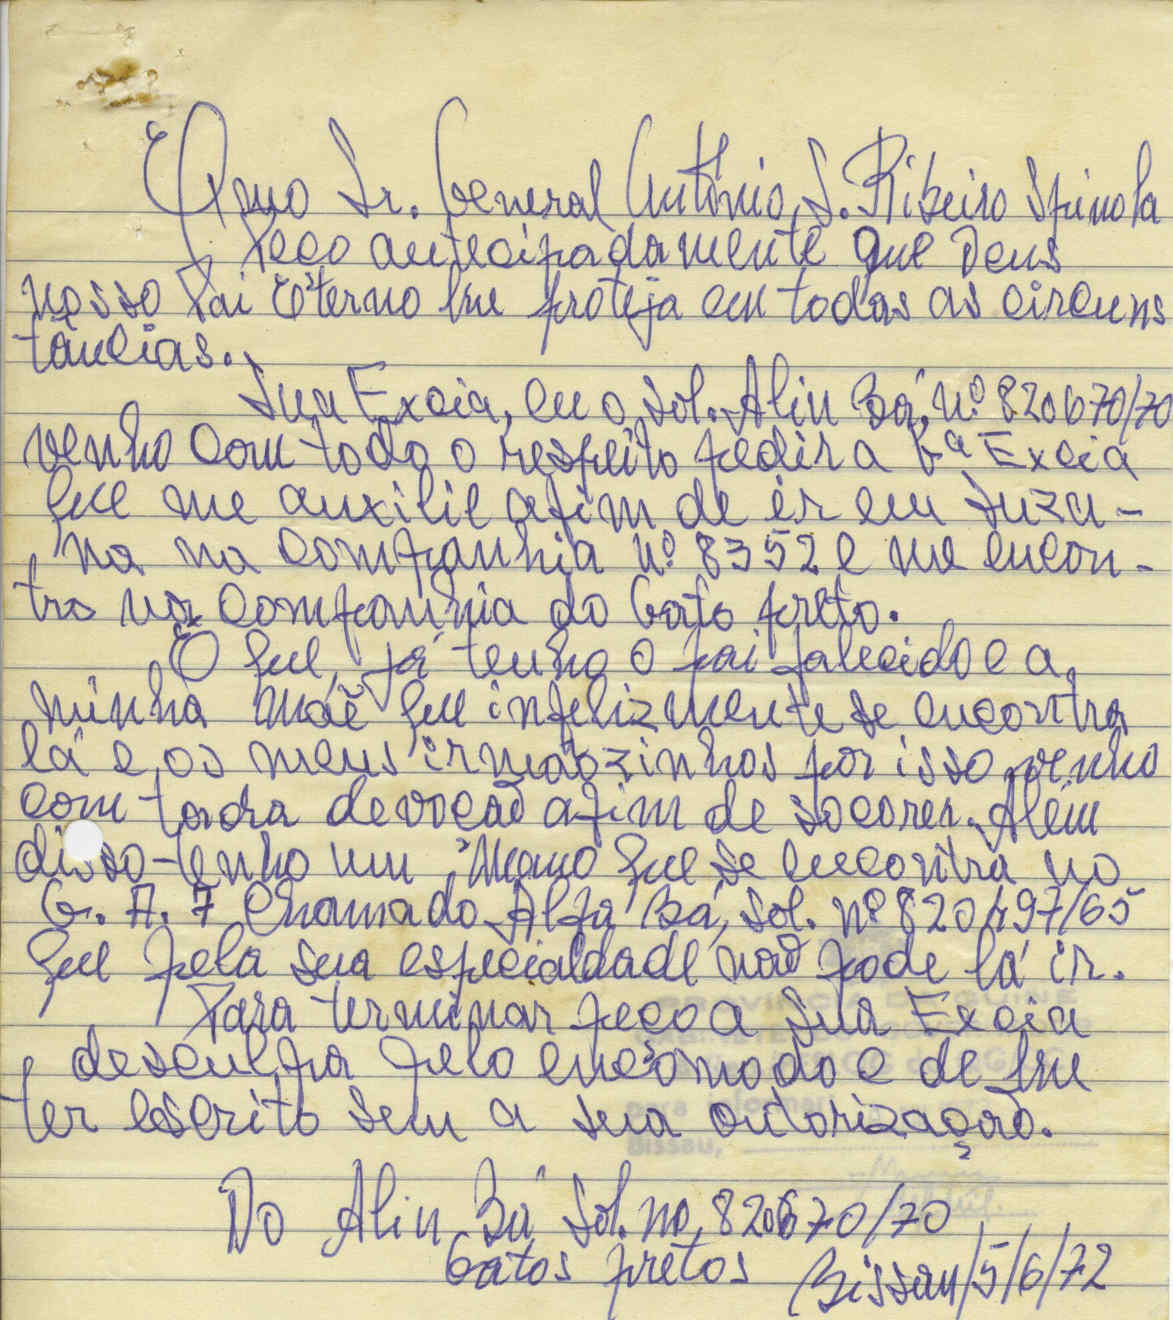 Exmo Sr. General António S. Ribeiro Spinola
Peço antecipadamente que Deus
nosso Pai Eterno lhe proteja em todas as circuns
tâncias.
Sua Excia, eu o sol. Aliu Bá, nº 820670/70
venho com todo o respeito pedir a Vª Excia
que me auxilie afim de ir em Suzu-
na na companhia nº 8352 e me encon-
tro na companhia do Gato preto.
É que já tenho o pai falecido e a
minha mãe que infelizmente se encontra
lá e os meus irmãozinhos por isso venho
com toda devoção afim de socorer. Além
disso tenho um mano que se encontra no
G. A. 7 chamado Alfa Bá, sol. nº 820497/65
que pela sua especialdade não pode lá ir.
Para terminar peço a Sua Excia
desculpa pelo encómodo e de lhe
ter escrito sem a sua autorização.
PROVINCIA DA GUINÉ
para informar
Bissau,
Do Aliu Bá Sol. no, 820670/70
Gatos pretos Bissau/5/6/72